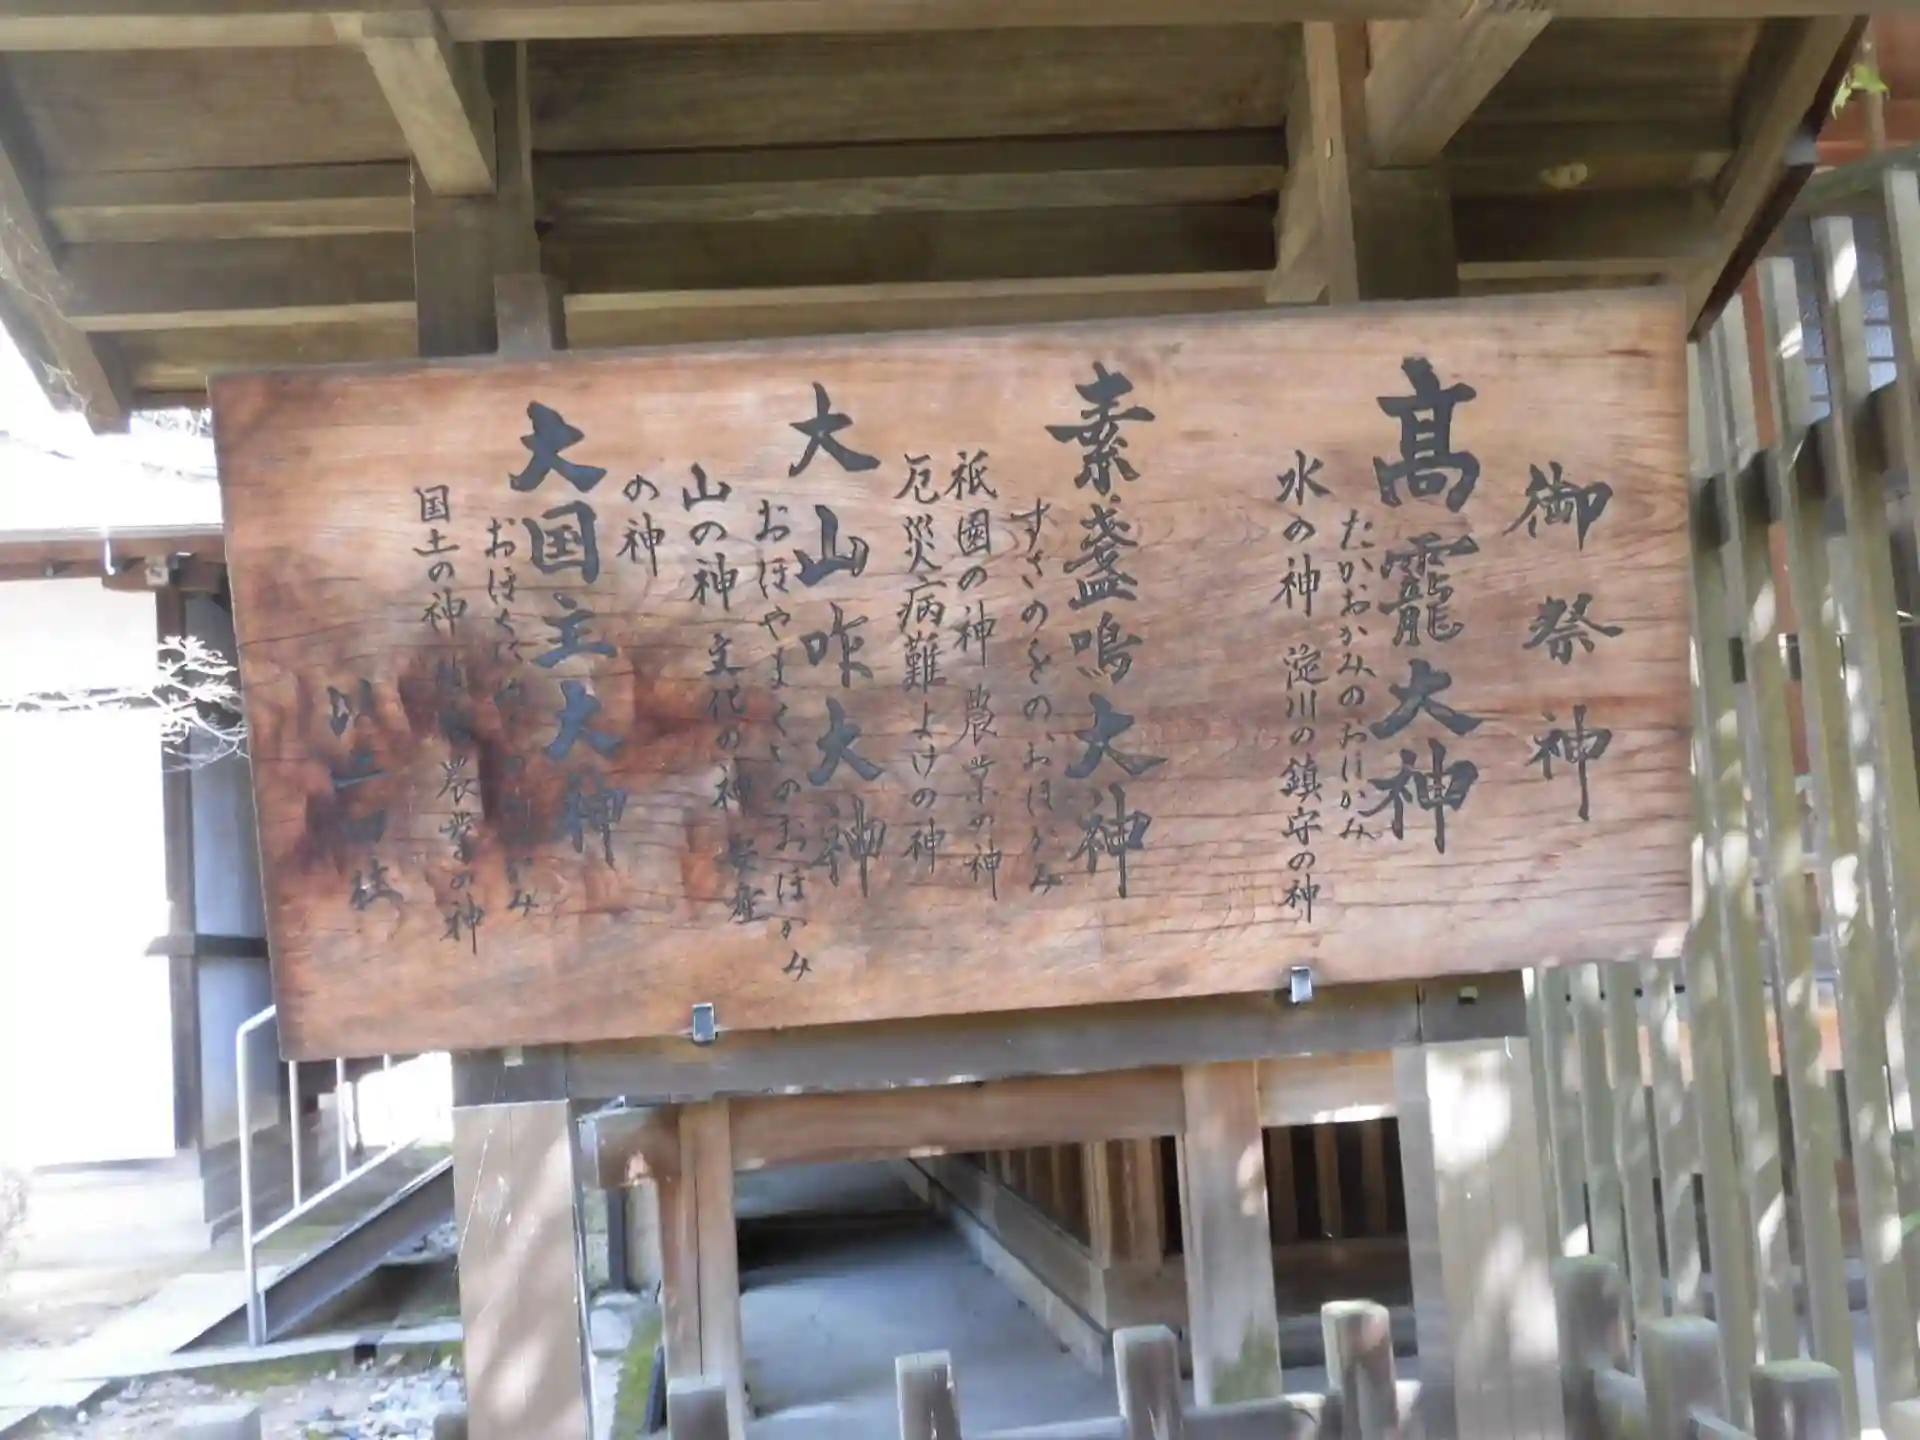 御祭神
髙龗大神
たかおかみのおほかみ
水の神 淀川の鎮守の神
素盞鳴大神
すさのをのおほかみ
祇園の神 農業の神
厄災病難よけの神
大山咋大神
おほやまくいのおほかみ
山の神 文化の神 安産
の神
大国主大神
おほくにぬしのおほかみ
国土の神 農業の神
以上四柱